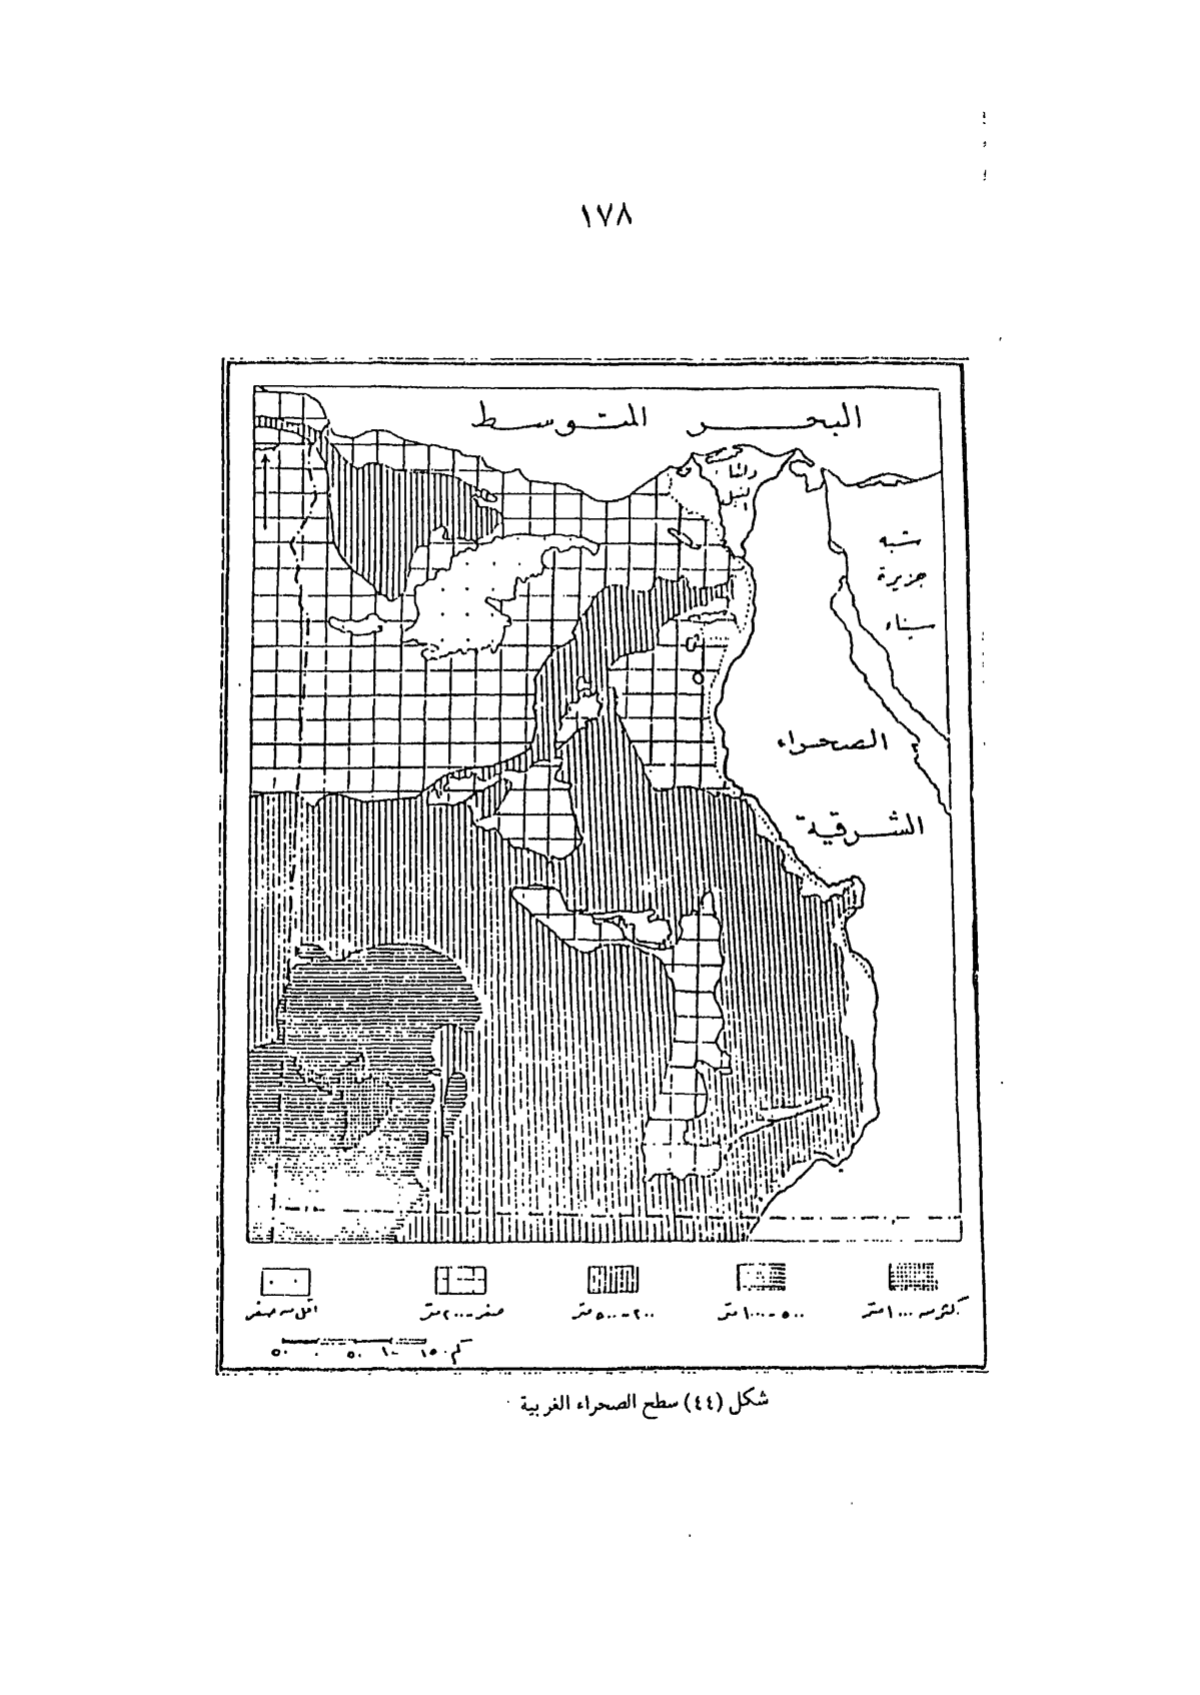 ١٧٨
البحر المتوسط
دلتا
النيل
شبه
جزيرة
سيناء
الصحراء
الشرقية
أقل من صفر
صفر-٢٠٠ متر
٢٠٠-٥٠٠ متر
٥٠٠-١٠٠٠ متر
أكثر من ١٠٠٠ متر
٥٠ ٠ ٥٠ ١٠٠ ١٥٠ كم
شكل (٤٤) سطح الصحراء الغربية